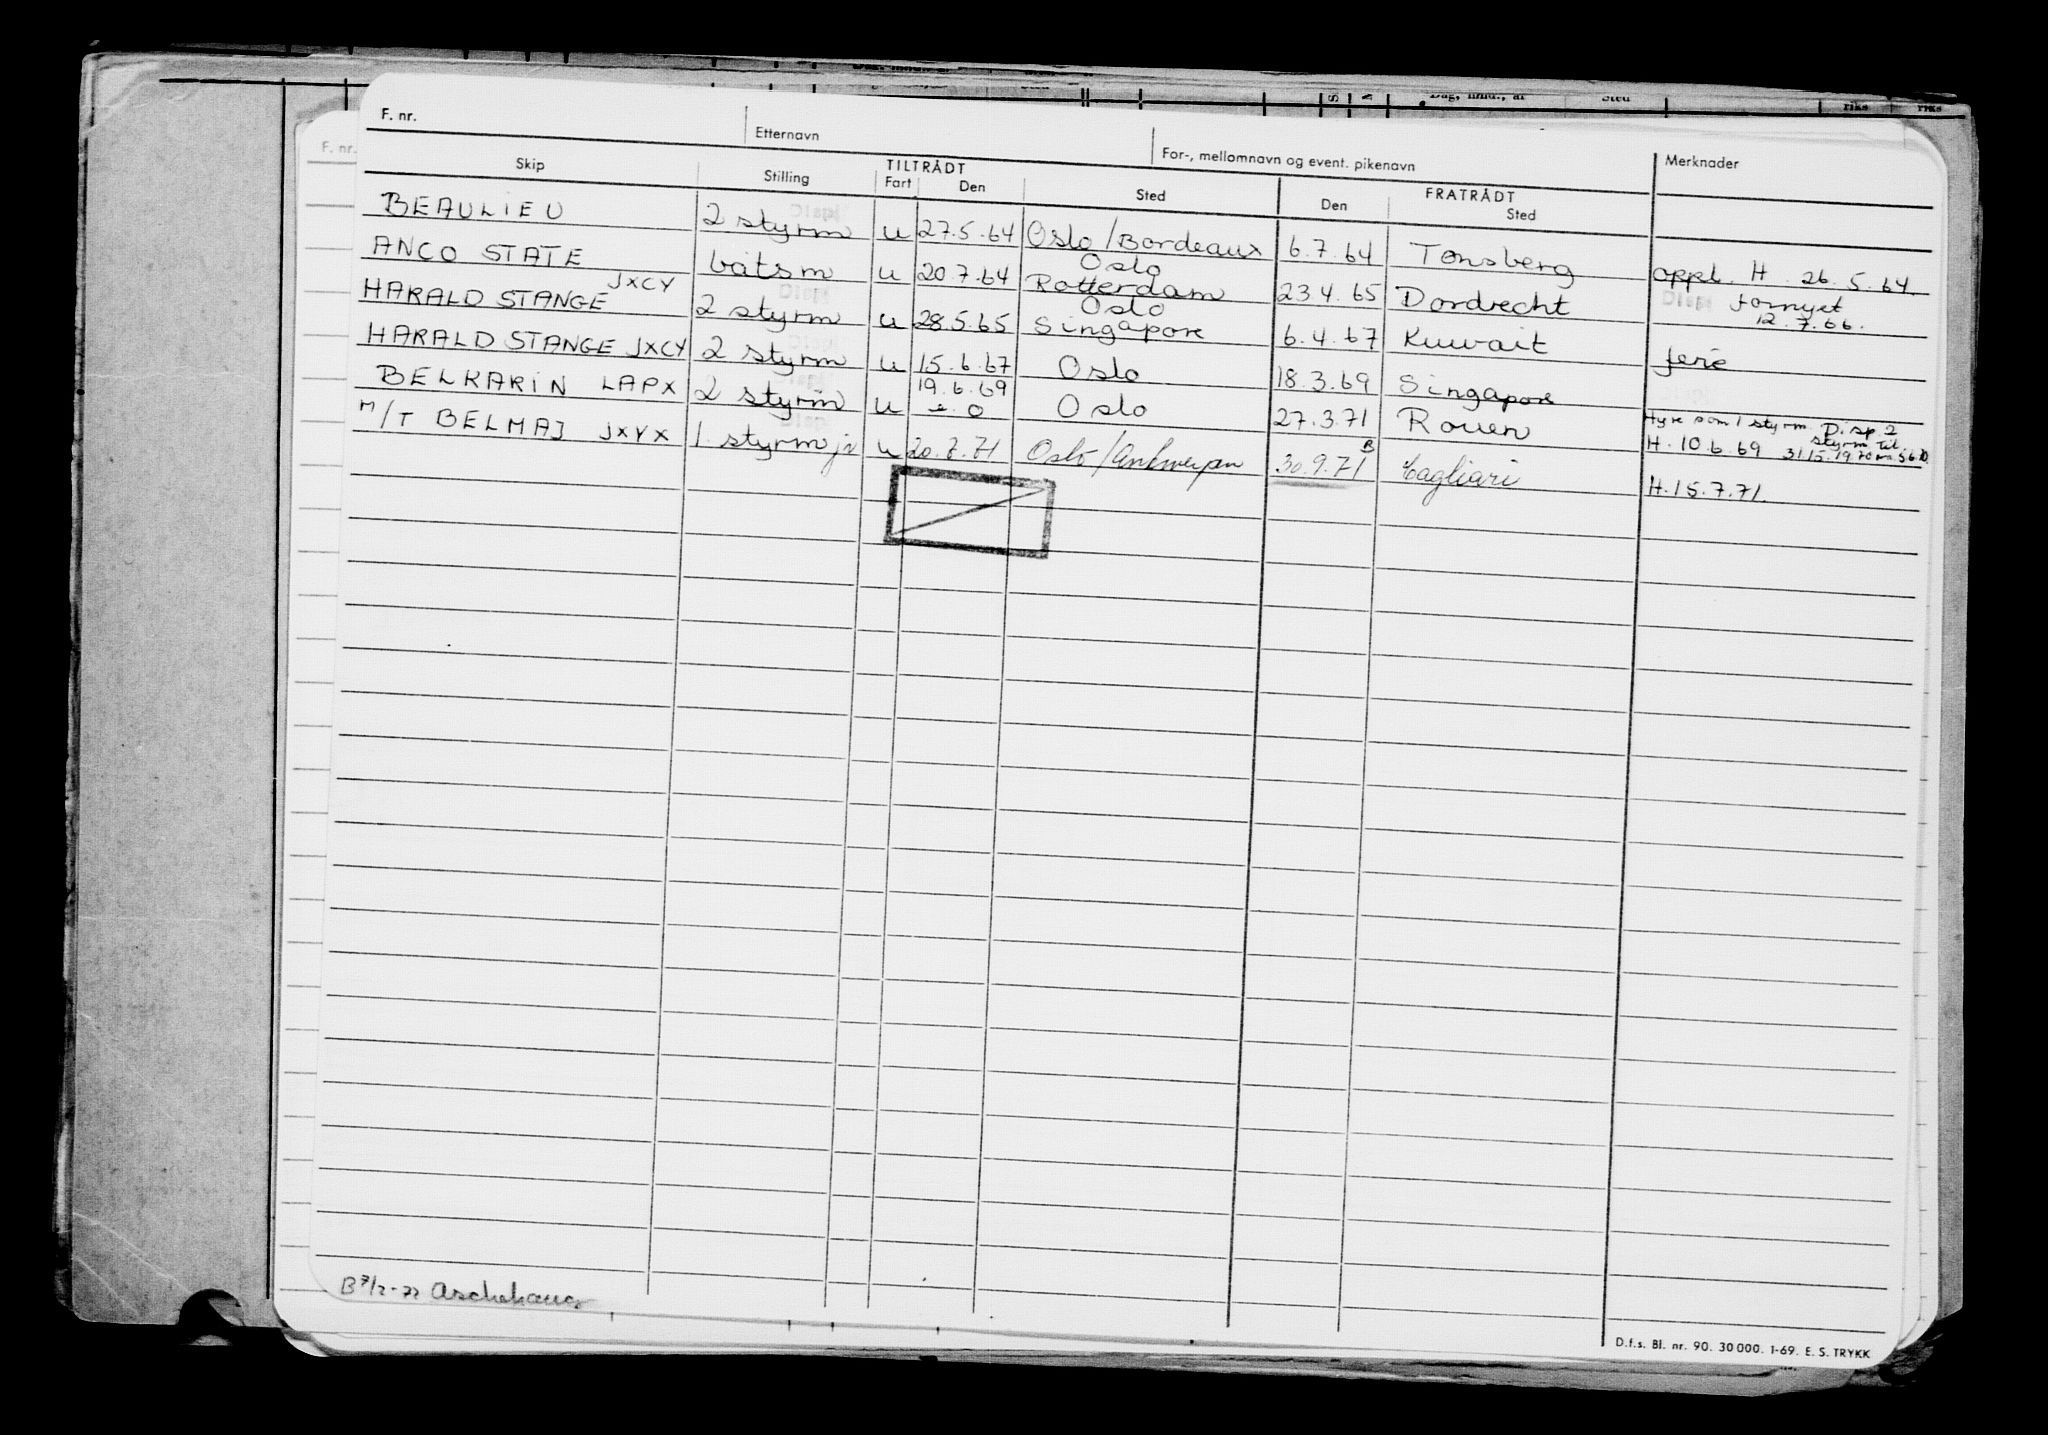 F. nr. Etternavn For-, mellomnavn og event. pikenavn Merknader
F. nr.
Skip Stilling TILTRÅDT Fart Den Sted FRATRÅDT Den Sted
BEAULIEU 2 styrm u 27.5.64 Oslo/Bordeaux 6.7.64 Tønsberg appl. H. 26.5.64.
ANCO STATE båtsm u 20.7.64 Oslo Rotterdam 23.4.65 Dordrecht fornyet 12.7.66.
HARALD STANGE JXCY 2 styrm u 28.5.65 Oslo Singapore 6.4.67 Kuwait ferie
HARALD STANGE JXCY 2 styrm u 15.6.67 Oslo 18.3.69 Singapore
BELKARIN LAPX 2 styrm u 19.6.69 e.O Oslo 27.3.71 Rouen Hyre som 1 styrm. Disp 2 styrm til 31/5.1970
H. 10.6.69
M/T BELMAJ JXVX 1 styrm jr u 20.7.71 Oslo/Antwerpen 30.9.71 B Cagliari H. 15.7.71.
B 7/2-72 Aschehaug
D.f.s. Bl. nr. 90. 30 000. 1-69. E. S. TRYKK